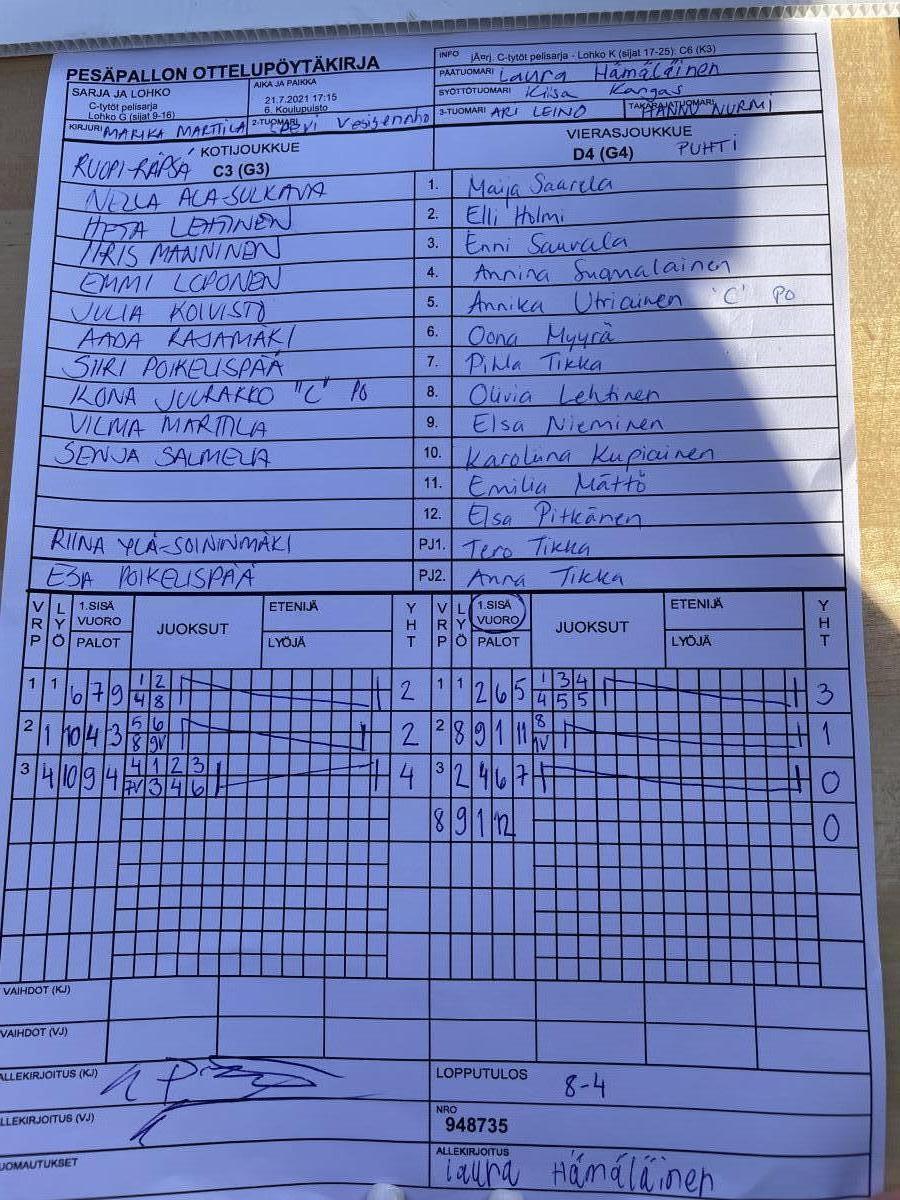 PESÄPALLON OTTELUPÖYTÄKIRJA
INFO jÄerj. C-tytöt pelisarja - Lohko K (sijat 17-25): C6 (K3)
PÄÄTUOMARI Laura Hämäläinen
SARJA JA LOHKO
C-tytöt pelisarja
Lohko G (sijat 9-16)
AIKA JA PAIKKA
21.7.2021 17:15
6. Koulupuisto
SYÖTTÖTUOMARI Kiisa Kangas
3-TUOMARI ARI LEINO
TAKARAJATUOMARI HANNU NURMI
KIRJURI MARIKA MARTTILA
2-TUOMARI
KOTIJOUKKUE
RUOPI-RÄPSÄ C3 (G3)
VIERASJOUKKUE
D4 (G4) PUHTI
NELLA ALA-SULKAVA 1. Maija Saarela
HETA LEHTINEN 2. Elli Holmi
IIRIS MANNINEN 3. Enni Saurala
EMMI LOPONEN 4. Annina Suomalainen
JULIA KOIVISTO 5. Annika Utriainen "C" PO
AADA RAJAMÄKI 6. Oona Myyrä
SIIRI POIKELISPÄÄ 7. Pihla Tikka
ILONA JUURAKKO "C" PO 8. Olivia Lehtinen
VILMA MARTTILA 9. Elsa Nieminen
SENJA SALMELA 10. Karoliina Kupiainen
11. Emilia Mättö
12. Elsa Pitkänen
RIINA YLÄ-SOININMÄKI PJ1. Tero Tikka
ESA POIKELISPÄÄ PJ2. Anna Tikka
VRP LYÖ 1.SISÄ VUORO PALOT JUOKSUT ETENIJÄ LYÖJÄ YHT VRP LYÖ 1.SISÄ VUORO PALOT JUOKSUT ETENIJÄ LYÖJÄ YHT
1 1 6 7 9 1 2 2 1 1 2 6 5 1 3 4 3
4 8 4 5 5
2 1 10 4 3 5 6 2 2 8 9 1 11 8 1
8 9V 1V
3 4 10 9 4 4 1 2 3 4 3 2 4 6 7 0
7V 3 4 6
8 9 1 12 0
VAIHDOT (KJ)
VAIHDOT (VJ)
ALLEKIRJOITUS (KJ)
LOPPUTULOS 8-4
ALLEKIRJOITUS (VJ)
NRO
948735
HUOMAUTUKSET
ALLEKIRJOITUS
Laura Hämäläinen